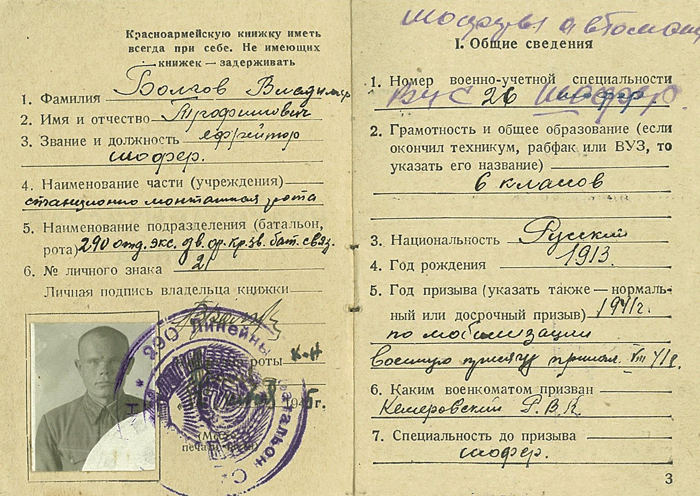 Красноармейскую книжку иметь
всегда при себе. Не имеющих
книжек — задерживать
1. Фамилия Болгов Владимир
2. Имя и отчество Трофимович
3. Звание и должность ефрейтор
шофер.
4. Наименование части (учреждения)
станционно монтажная рота
5. Наименование подразделения (батальон,
рота) 290 отд. Экс. дв. ор. кр. зв. бат. связ.
6. № личного знака 21
Личная подпись владельца книжки
роты к-н
194 г.
290 Линейны
шофер автомаш
I. Общие сведения
1. Номер военно-учетной специальности
ВУС 26 шофер.
2. Грамотность и общее образование (если
окончил техникум, рабфак или ВУЗ, то
указать его название)
6 класов
3. Национальность Русский
4. Год рождения 1913.
5. Год призыва (указать также — нормаль-
ный или досрочный призыв) 1941г.
по мобилизации
военную присягу принял. VIII 41г.
6. Каким военкоматом призван
Кемеровский Р.В.К
7. Специальность до призыва
шофер.
3